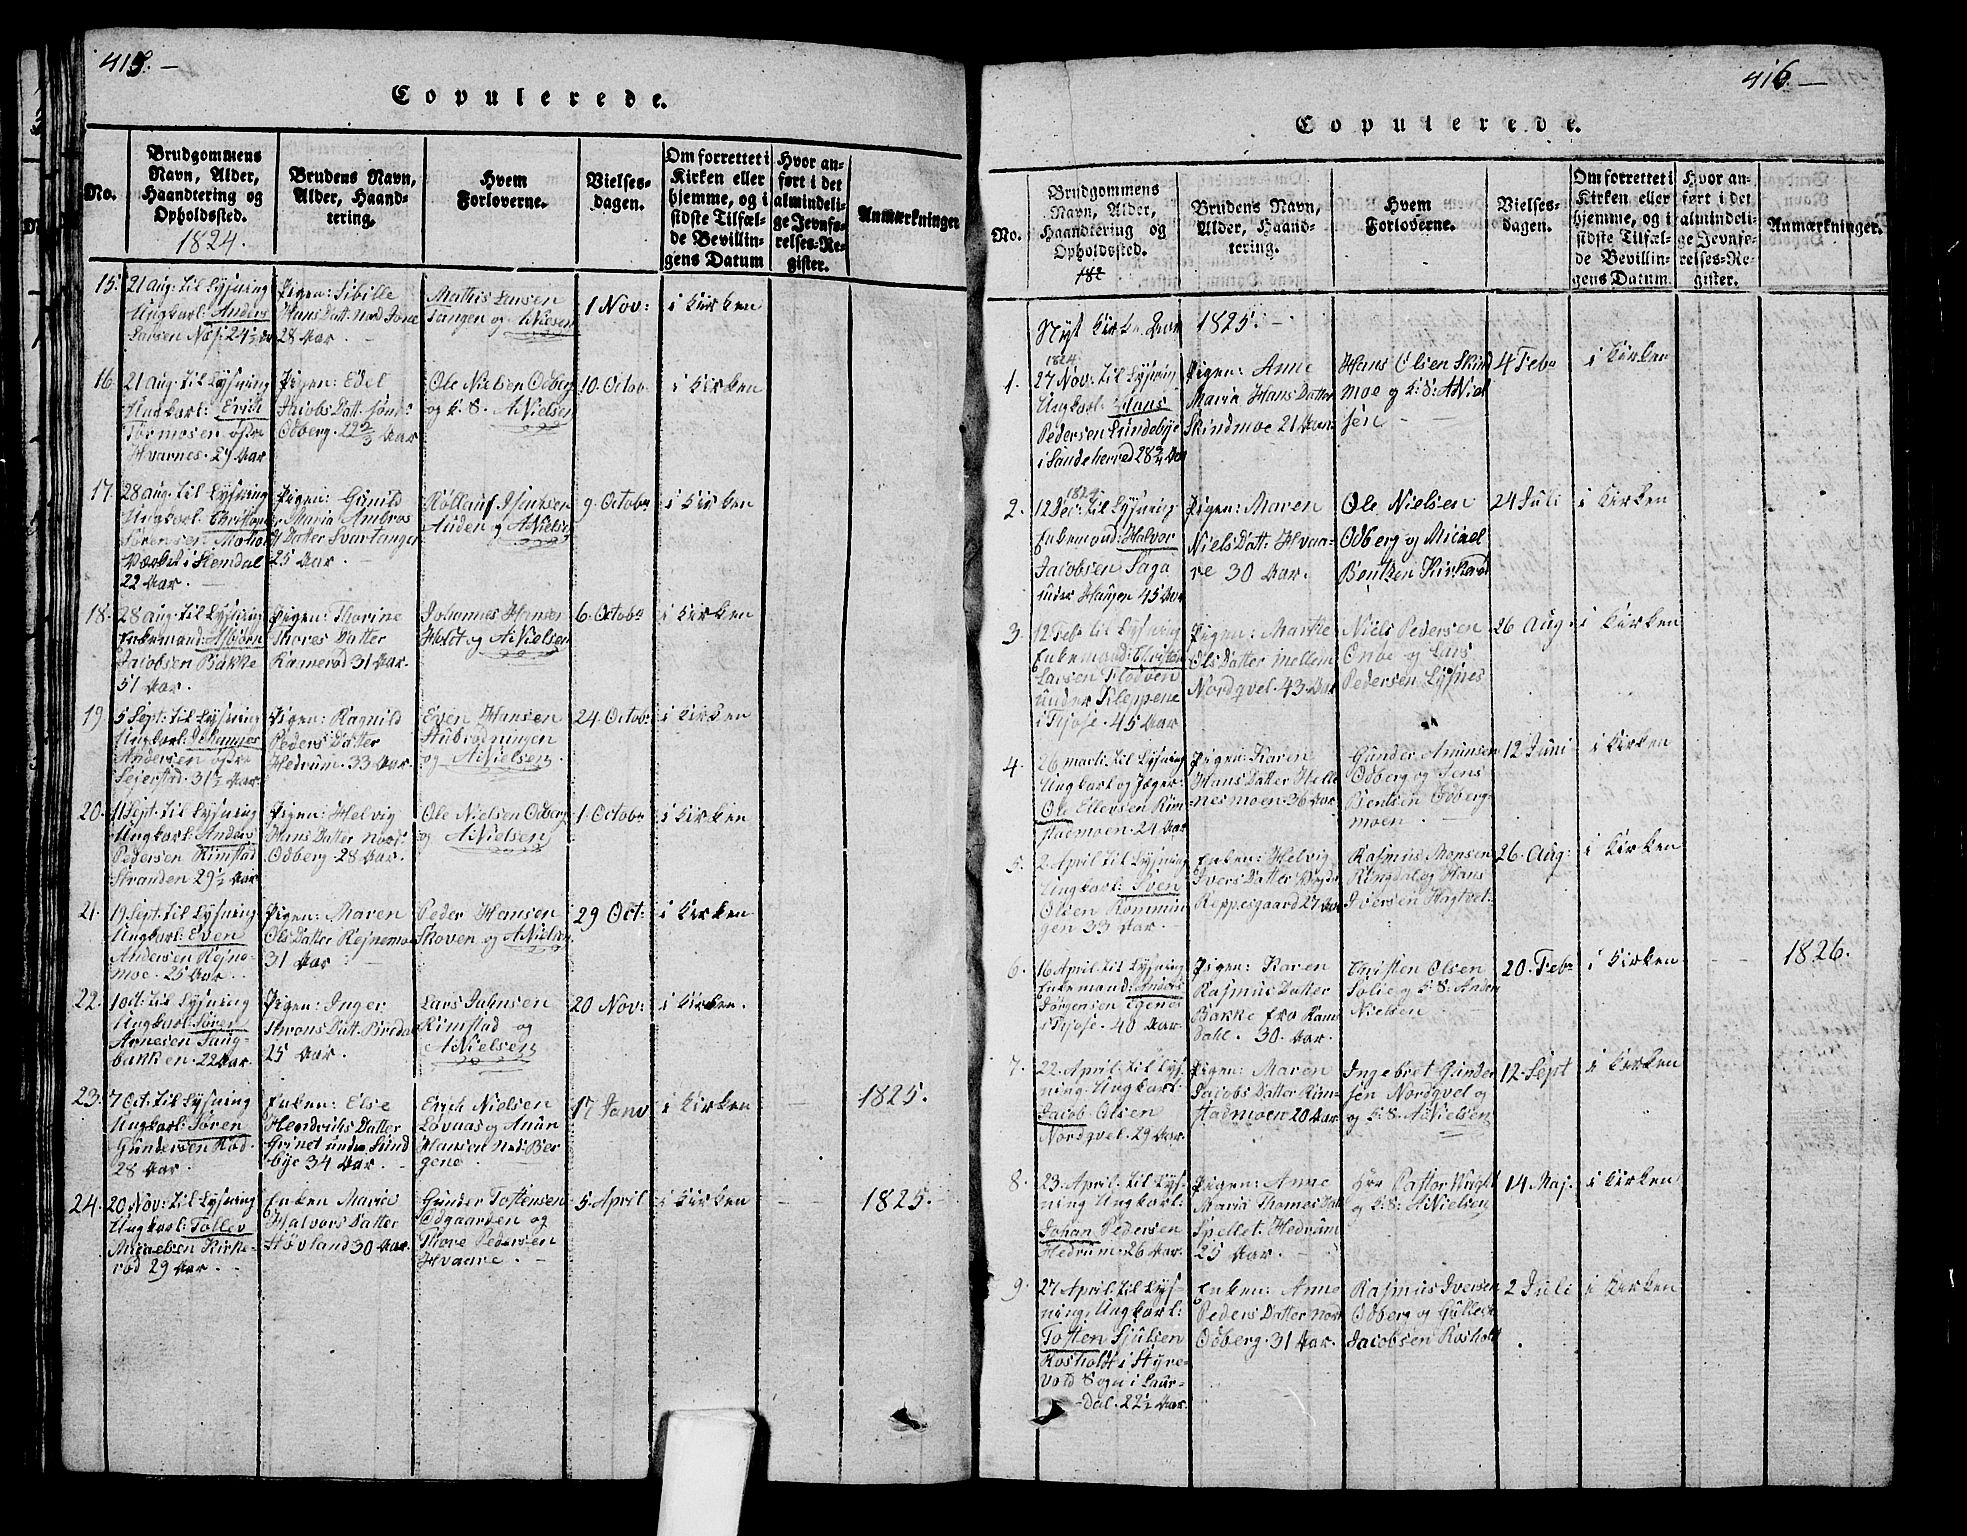 415. —
Copulerede.
No.
Brudgommens
Navn, Alder,
Haandtering og
Opholdssted.
1824.
Brudens Navn,
Alder, Haand-
tering.
Hvem
Forloverne.
Vielses-
dagen.
Om forrettet i
Kirken eller
hjemme, og i
sidste Tilfæl-
de Bevillin-
gens Datum
Hvor an-
ført i det
almindeli-
ge Jevnfø-
relses-Re-
gister.
Anmærkninger
15.
21 Aug: til Lysning
Ungkarl: Anders
Larsen
Pigen: Sibille
Hans Datt:
28 Aar.
Mathis Larsen
Tangen og A:Nielsen
1 Nov:
i Kirken
16.
21 Aug: til Lysning
Ungkarl: Erich
Tormosen
Hvarnes. 27 Aar
Pigen: Edel
Jacobs Datt:
Odberg. 22 2/3 Aar
Ole Nielsen Odberg
og k:s. A:Nielsen
10. Octob.
i Kirken
17.
28 Aug: til Lysning
Ungkarl:
Sørensen
22 Aar.
Pigen: Gunild
Maria Ambros
Datter Svartanger
25 Aar.
Anden og A:Nielsen
9. Octobr
i Kirken
18.
28 Aug: til Lysning
Enkemand: Asbiørn
Jacobsen Bakke
51 Aar.
Pigen: Thorine
Thores Datter
Kamerød 31 Aar.
Johannes Hansen
Holdt og A:Nielsen
6. Octobr
i Kirken
19.
5 Sept: til Lysning
Ungkarl: Johannes
Andersen
Seierstad. 31 1/2 Aar.
Pigen: Ragnild
Peders Datter
Hedrum. 33 Aar.
Even Hansen
Stubrødningen
og A:Nielsen
24. Octobr
i Kirken
20.
11 Sept: til Lysning
Ungkarl: Anders
Pedersen Rimstad
Stranden 29 1/2 Aar
Pigen: Helvig
Hans Datter
Odberg 28 Aar.
Ole Nielsen Odberg
og A:Nielsen
1. Octobr
i Kirken
21.
19 Sept: til Lysning
Ungkarl: Even
Andersen Rejne-
moe. 25 Aar.
Pigen: Maren
Ols Datter Rejnemoe
31 Aar
Peder Hansen
Skoven og A:Nielsen
29 Oct:
i Kirken
22.
1 Oct: til Lysning
Ungkarl: Søren
Arnesen Haug-
bakken. 22 Aar.
Pigen: Inger
25 Aar.
Lars Julinsen
Rimstad og
A:Nielsen
20 Nov:
i Kirken.
23.
7 Oct: til Lysning
Ungkarl: Søren
Gundersen Rød
28 Aar.
Enken: Else
Hendrichs Datter
Grinet under Sund
bye 34 Aar.
Erich Nielsen
Løvaas og Amun
Hansen Ned: Ber
gene.
17 Janv
i Kirken
1825.
24.
20 Nov: til Lysning
Ungkarl: Tollev
Micaelsen Kirke-
rød 29 Aar.
Enken Maria
Halvors Datter
Høvland 30 Aar.
Gunder Tostensen
Odgaarden og
Thore Pedersen
Hvaare.
5. April
i Kirken
1825.
416. —
Copulerede.
No.
Brudgommens
Navn, Alder,
Haandtering og
Opholdssted.
182
Brudens Navn,
Alder, Haand-
tering.
Hvem
Forloverne.
Vielses-
dagen.
Om forrettet i
Kirken eller
hjemme, og i
sidste Tilfæl-
de Bevillin-
gens Datum.
Hvor an-
ført i det
almindeli-
ge Jevnfø-
relses-Re-
gister.
Anmærkninger.
Nyt Kirke Aar 1825. —
1.
1824
27 Nov: til Lysning
Ungkarl: Hans
Pedersen Sundebye
i Sandeherred 28 3/4 Aar
Pigen: Anne
Maria Hans Datter
Skindmoe 21 Aar
Hans Olsen Skind
moe og k:s: A:Niel
sen
4 Febr
i Kirken
2.
1824
12 Dec: til Lysning
Enkemand: Halvor
Jacobsen Saga
under Haugen 45 Aar
Pigen: Maren
Niels Datt: Hvaa-
re 30 Aar.
Ole Nielsen
Odberg og Micael
Bentsen Kirkerød
24 Juli
i Kirken
3.
12 Febr til Lysning
Enkemand: Christen
Larsen Flodven
under Kleppene
i Tjose. 45 Aar
Pigen: Marthe
Ols Datter Mellem
Nordqvel. 43 Aar
Niels Pedersen
Onoe og Lars
Pedersen Lysnes
26 Aug:
i Kirken
4.
26 Marti til Lysning
Ungkarl og Jæger:
Ole Ellersen Rim-
stadmoen. 24 Aar
Pigen: Karen
Hans Datter Helle
nesmoen. 36 Aar
Gunder Amunsen
Odberg og Jens
Bentsen Odberg-
moen.
12 Juni
i Kirken
5.
2. April til Lysning
Ungkarl: Sven
Olsen Rømmin-
gen 33 Aar.
Enken: Helvig
Ivers Datter
Reppesgaard 27 Aar
Rasmus Monsen
Ringdal og Hans
Iversen Hagtvet:
26. Aug:
i Kirken
6.
16 April til Lysning
Enkemand: Anders
Jørgensen Egenes
i Tjose. 40 Aar.
Pigen: Karen
Rasmus Datter
Bakke fra Ram
Dahl. 30. Aar.
Christen Olsen
Solie og k:s: Anders
Nielsen
20. Febr
i Kirken
1826.
7.
22. April: til Lys-
ning. Ungkarl:
Jacob Olsen
Nordqvel. 29 Aar.
Pigen: Maren
Jacobs Datter Rim-
stadmoen 20 Aar
Ingebret Gunder
sen Nordqvel og
og k:s. A:Nielsen
12. Sept
i Kirken
8.
23. April: til Lys-
ning Ungkarl:
Johan Pedersen
Hedrum. 26 Aar.
Pigen: Anne
Maria Thomes Datt
Spellet. Hedrum
25 Aar.
Hrr Pastor Wright
og k:s: A:Nielsen
14 Maj.
i Kirken
9.
27 April: til Lys-
ning. Ungkarl:
Tosten Sjulsen
Rosholdt i Styre-
vold Sogn i Laur-
dal. 22 1/2 Aar.
Enken: Anne
Peders Datter
Odberg. 31 Aar.
Rasmus Iversen
Odberg og Gullech
Jacobsen Rosholdt
2 Juli
i Kirken